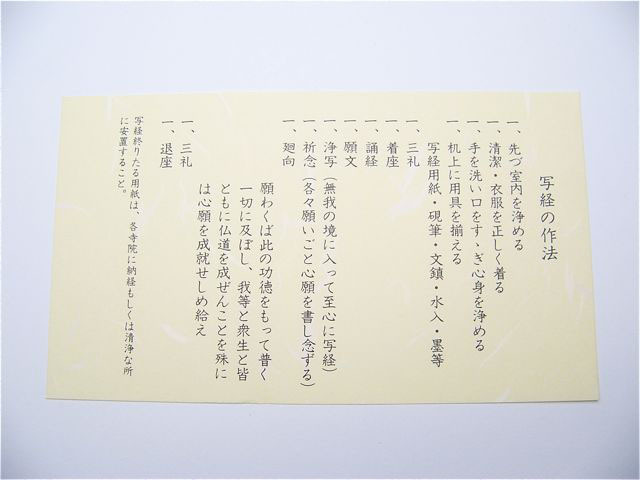 写経の作法
一、先づ室内を浄める
一、清潔・衣服を正しく着る
一、手を洗い口をすゝぎ心身を浄める
一、机上に用具を揃える
写経用紙・硯筆・文鎮・水入・墨等
一、三礼
一、着座
一、誦経
一、願文
一、浄写（無我の境に入って至心に写経）
一、祈念（各々願いごと心願を書し念ずる）
一、廻向
願わくば此の功徳をもって普く
一切に及ぼし、我等と衆生と皆
ともに仏道を成ぜんことを殊に
は心願を成就せしめ給え
一、三礼
一、退座
写経終りたる用紙は、各寺院に納経もしくは清浄な所
に安置すること。